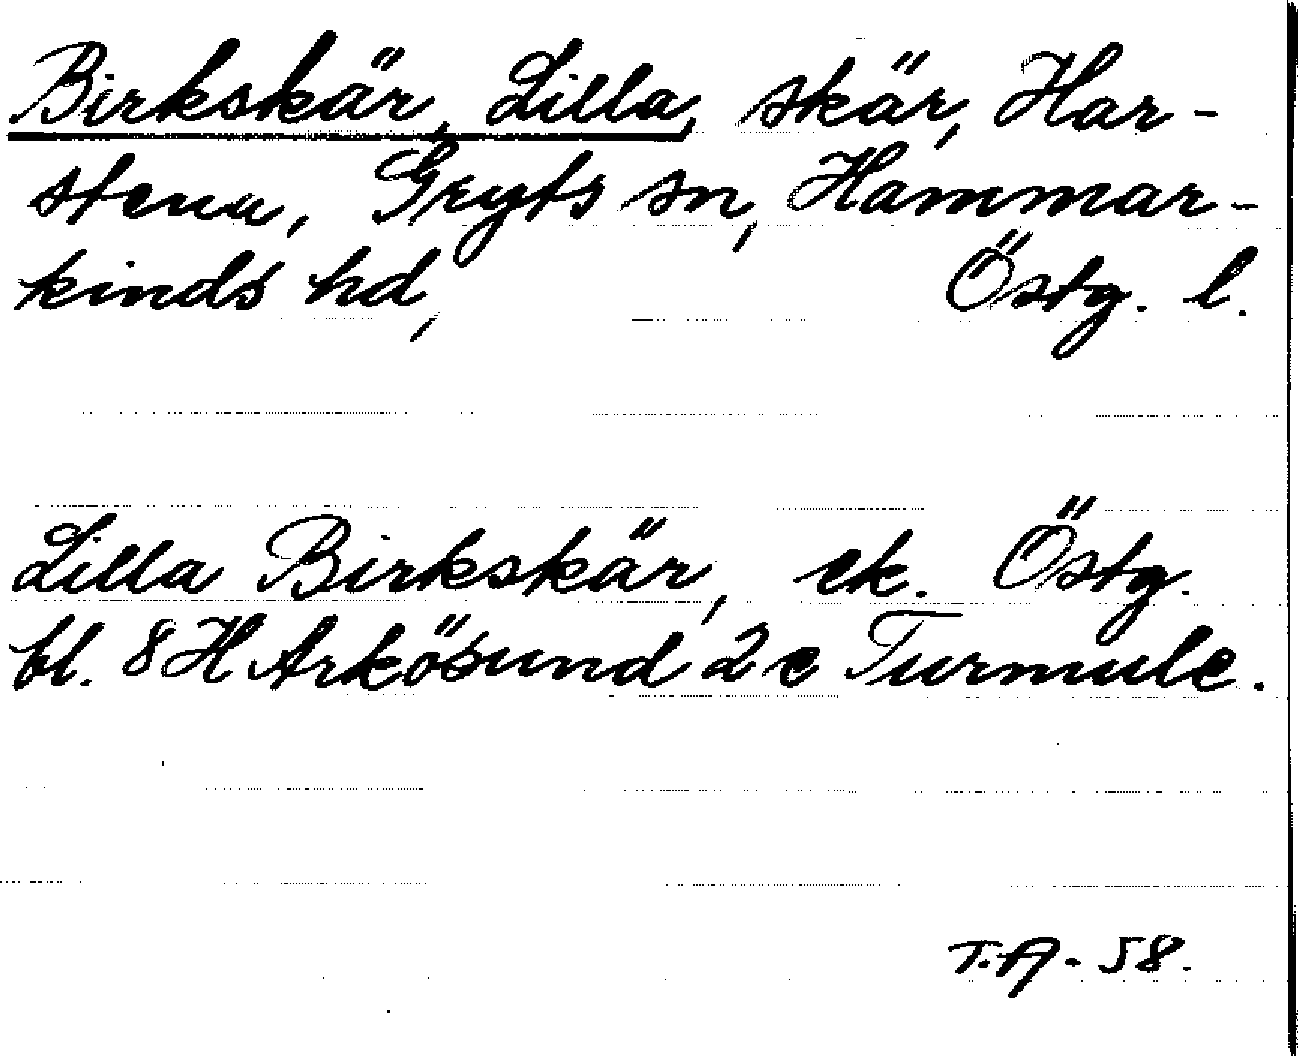 Birkskär, Lilla, skär, Har-
stena, Gryts sn, Hammar-
kinds hd, Östg. l.
Lilla Birkskär, ek. Östg.
bl. 8 H Arkösund 2 c Turmule.
T.A - 58.